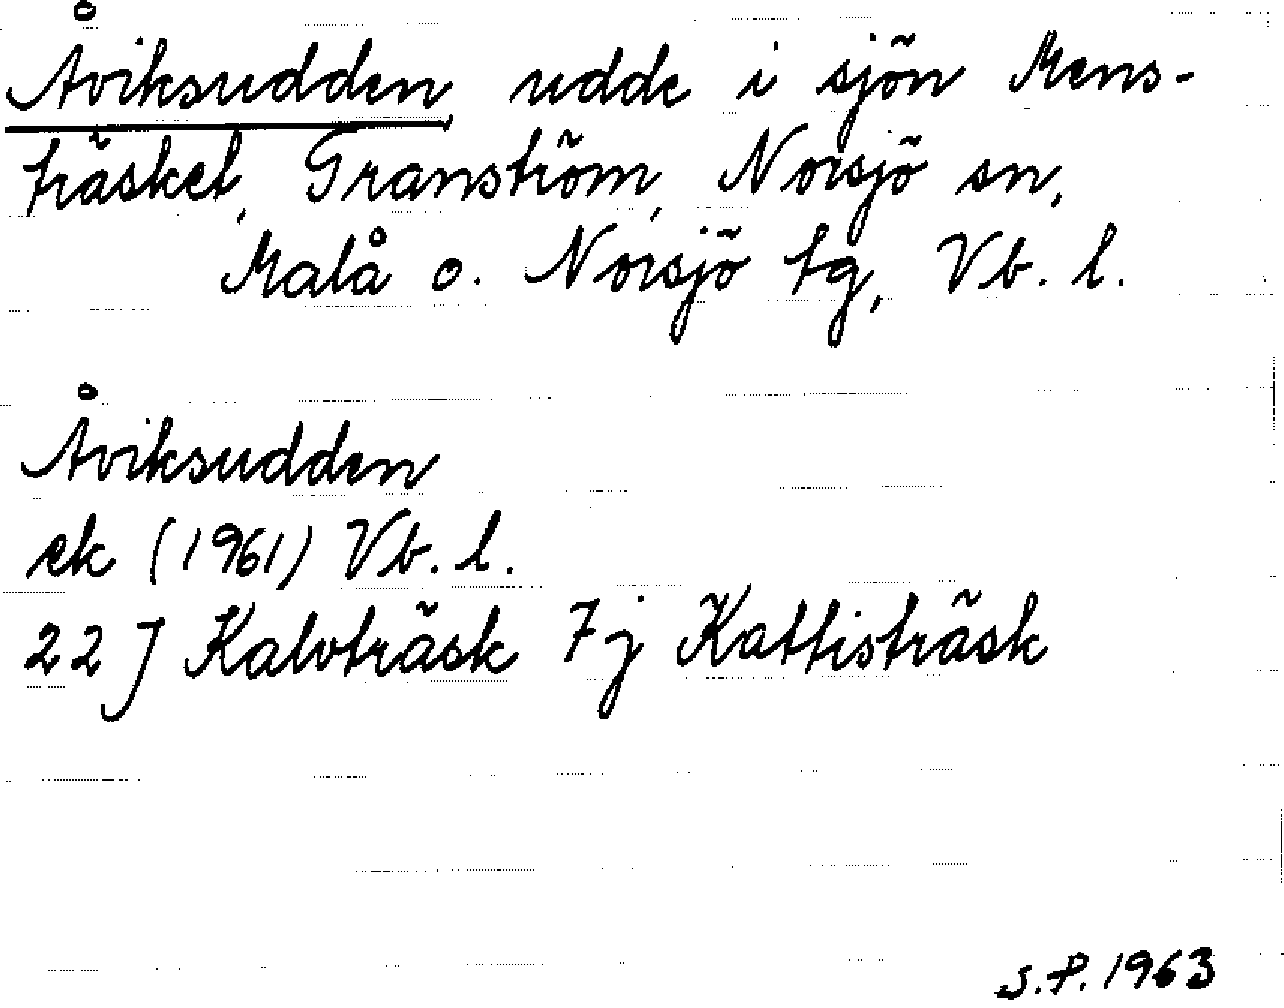 Åviksudden, udde i sjön Mens-
träsket, Granström, Norsjö sn,
Malå o. Norsjö tg, Vb. l.
Åviksudden
ek (1961) Vb. l.
22 J Kalvträsk 7j Kattisträsk
S.P. 1963